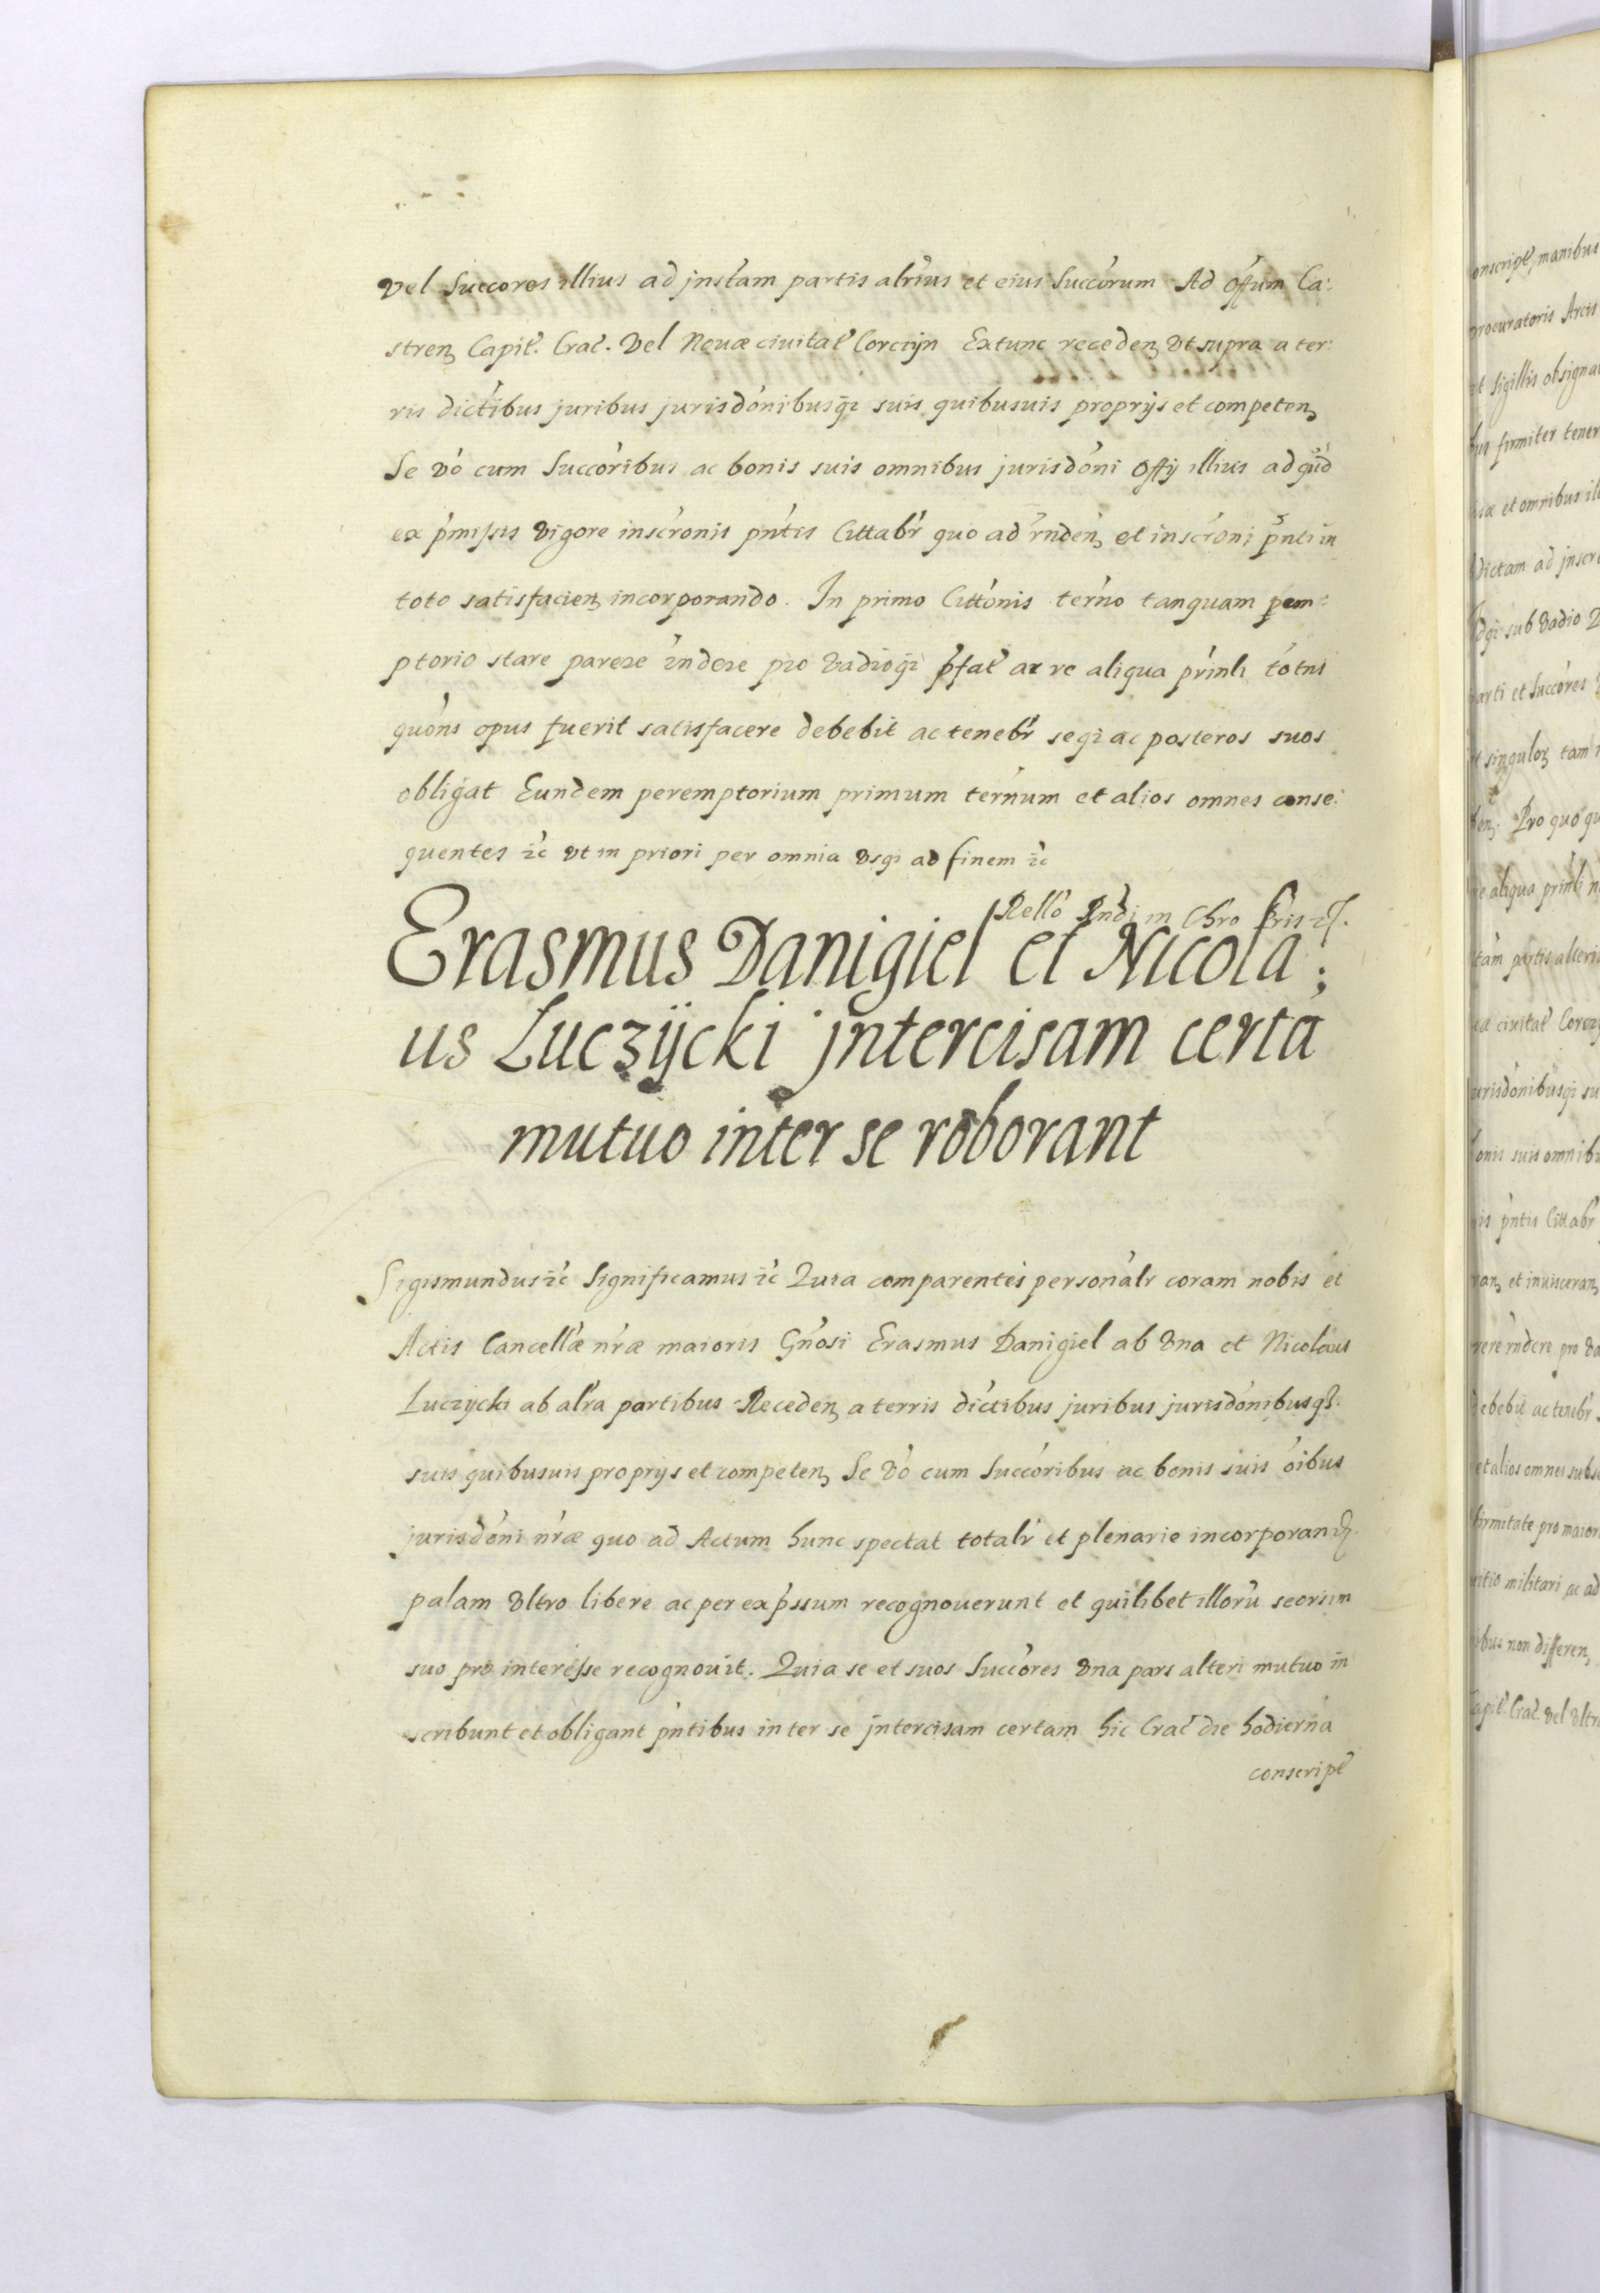 vel Succores illius ad jnstam partis alrius et eius Succorum Ad offum Ca:
stren Capit. Crac. vel Novæ civitat Corcijn Extunc receden vt supra a ter:
ris dictibus juribus jurisdonibusq suis quibusuis proprijs et competen
Se vo cum Succoribus ac bonis suis omnibus jurisdoni offij illius ad qud
ex pmissis vigore inscronis pntis Cittabr quo ad rnden et inscroni pnti in
toto satisfacien incorporando. In primo Cittonis terno tanquam pem:
ptorio stare parere rndere pro vadioq pfat ac re aliqua prinli totns
quons opus fuerit satisfacere debebit ac tenebr seq ac posteros suos
obligat Eundem peremptorium primum ternum et alios omnes conse:
quentes rc vt in priori per omnia vsq ad finem rc
Rello Rndi in Chro Pris
Erasmus Danigiel et Nicola;
us Luczijcki jntercisam certa
mutuo inter se roborant
Sigismundus rc Significamus rc Quia comparentes personalr coram nobis et
Actis Cancellæ nræ maioris Gnosi Erasmus Danigiel ab vna et Nicolaus
Luczycki ab alra partibus Receden a terris dictibus juribus jurisdonibusq
suis quibusuis proprijs et competen Se vo cum Succoribus ac bonis suis oibus
jurisdoni nræ quo ad Actum hunc spectat totalr et plenarie incorporan
palam vltro libere ac per expssum recognouerunt et quilibet illoru seorsim
suo pro interesse recognouit. Quia se et suos Succores vna pars alteri mutuo in
scribunt et obligant pntibus inter se jntercisam certam hic Crac die hodierna
conscript